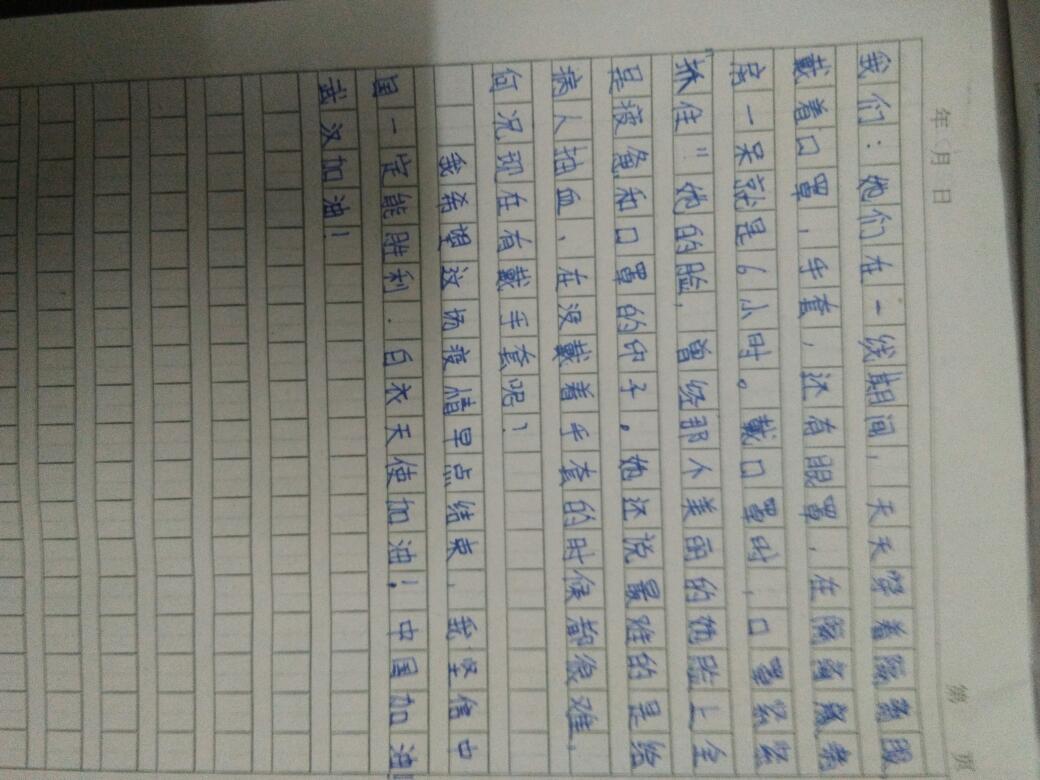 年 月 日
第 页
我们:她们在一线期间,天天穿着隔离服
戴着口罩,手套,还有眼罩,在隔离病房
一呆就是6小时。戴口罩时,口罩紧紧
抓住"她的脸,曾经那个美丽的她脸上全
是疲惫和口罩的印子。她还说最难的是给
病人抽血,在没戴着手套的时候都很难,
何况现在有戴手套呢?
我希望这场疫情早点结束,我坚信中
国一定能胜利.白衣天使加油!中国加油!
武汉加油!